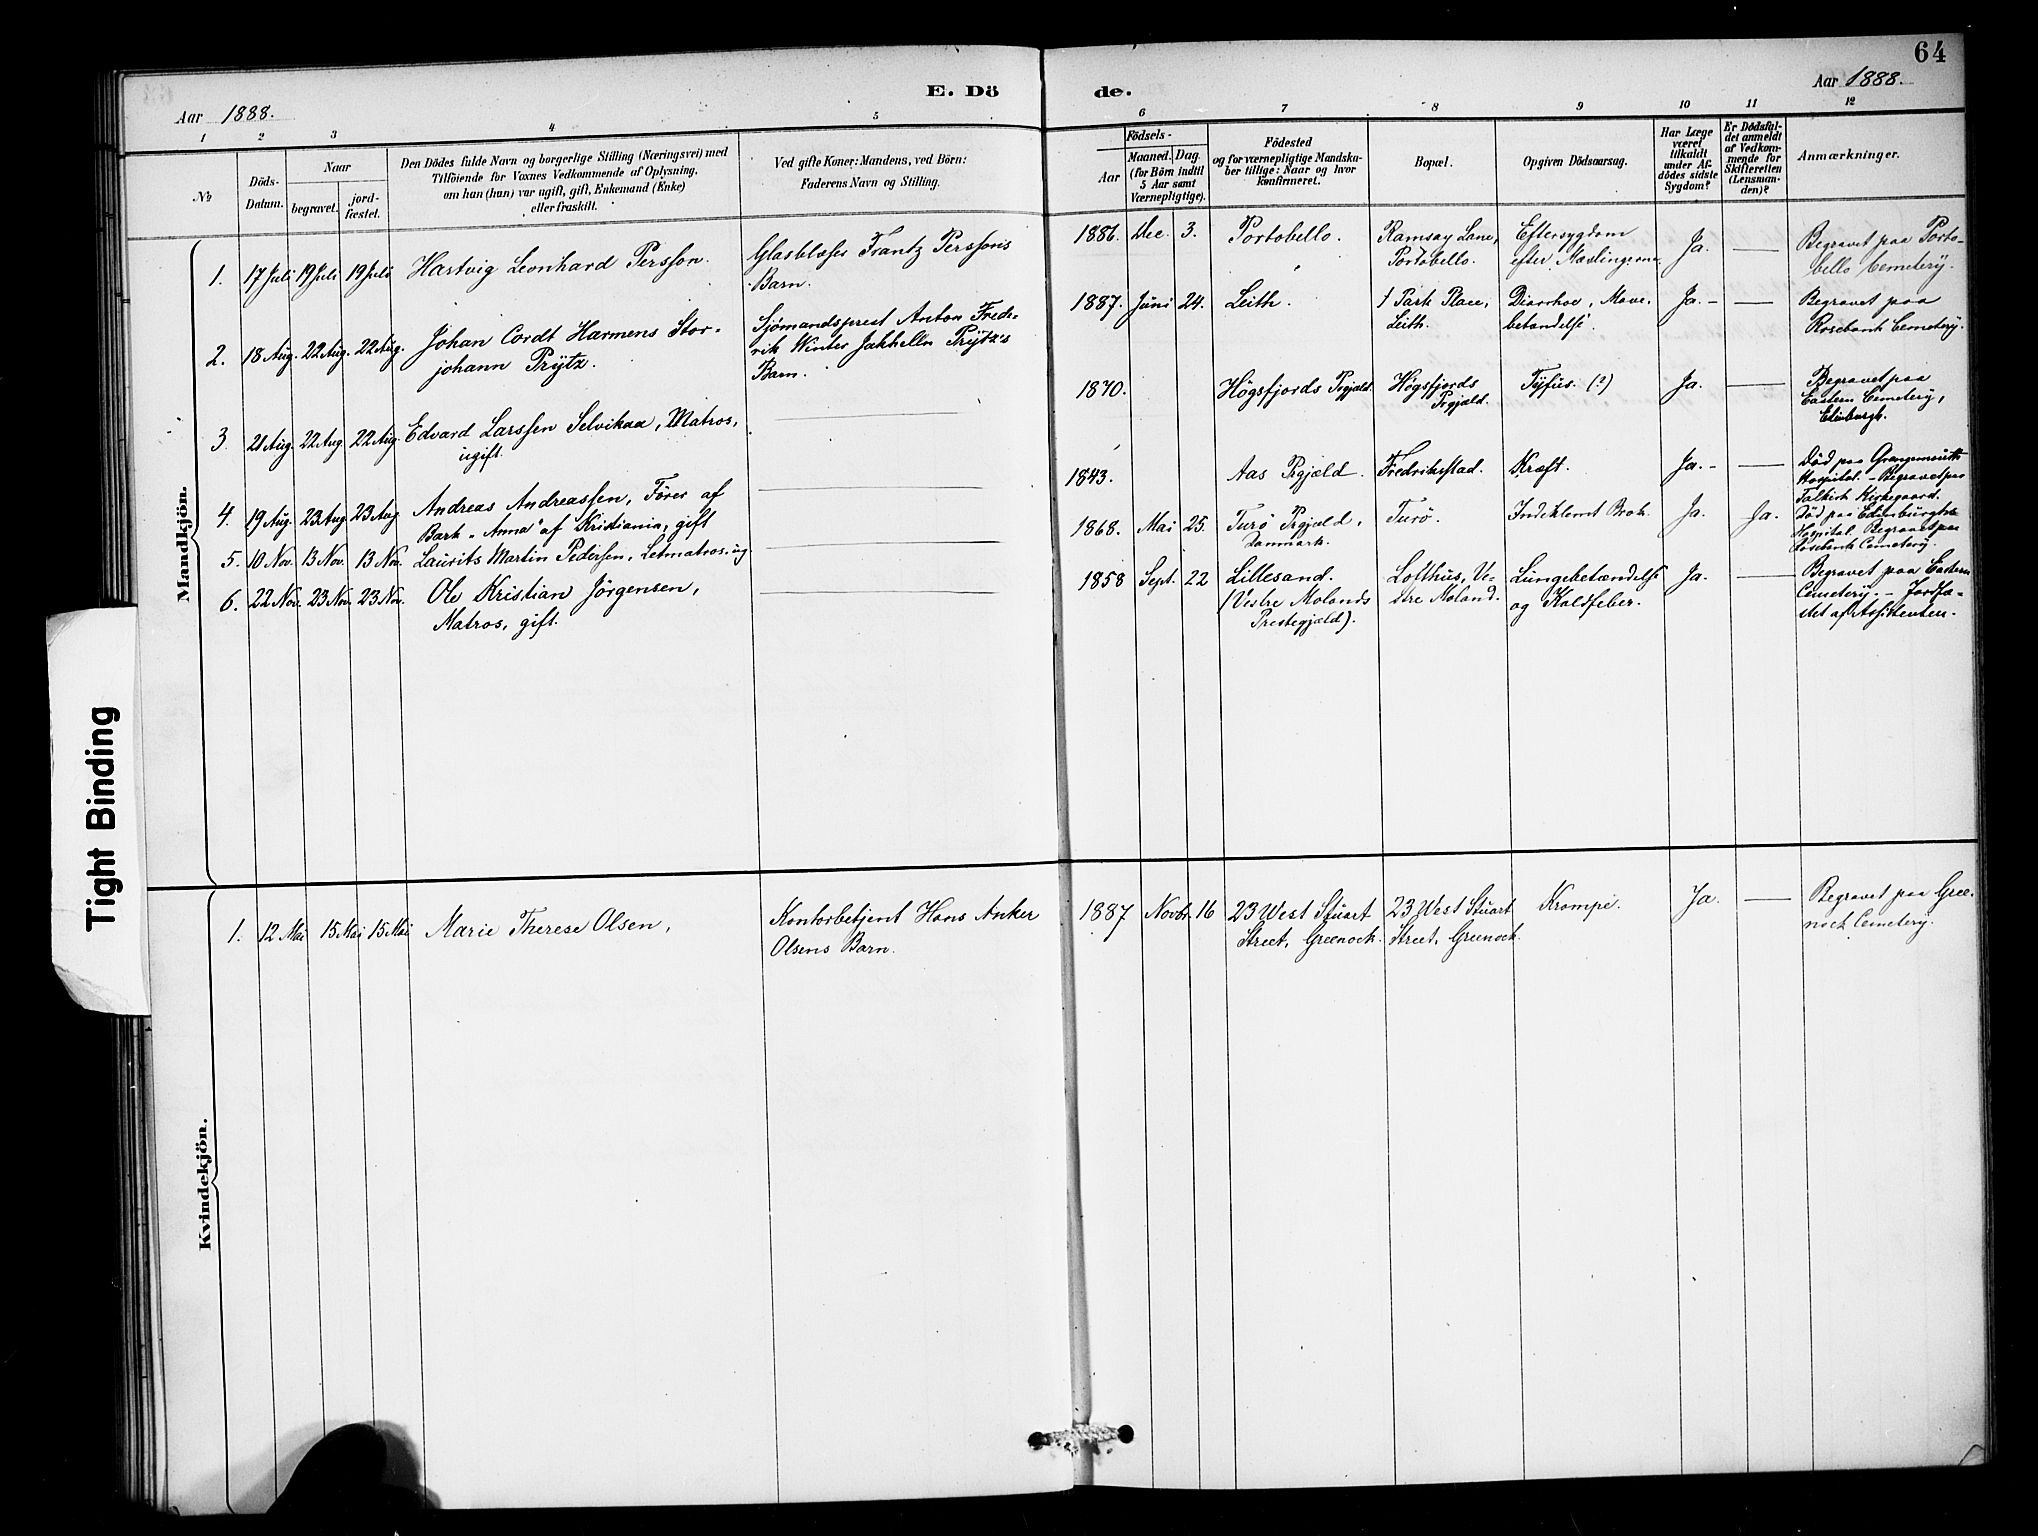 64
E. Dö de.
Aar 1888.
Aar 1888.
1 2 3 4 5 6 7 8 9 10 11 12
No
Döds-
Datum.
Naar
begravet.
jord-
fæstet.
Den Dödes fulde Navn og borgerlige Stilling (Næringsvei) med
Tilföiende for Voxnes Vedkommende af Oplysning,
om han (hun) var ugift, gift, Enkemand (Enke)
eller fraskilt.
Ved gifte Koner: Mandens, ved Börn:
Faderens Navn og Stilling.
Födsels-
Aar
Maaned. Dag.
(for Börn indtil
5 Aar samt
Værnepligtige).
Födested
og for værnepligtige Mandska-
ber tillige: Naar og hvor
konfirmeret.
Bopæl.
Opgiven Dödsaarsag.
Har Læge
været
tilkaldt
under Af-
dödes sidste
Sygdom?
Er Dödsfal-
det anmeldt
af Vedkom-
mende for
Skifteretten
(Lensman-
den)?
Anmærkninger.
Mandkjön.
1. 17 Juli 19 Juli 19 Juli Hartvig Leonhard Persson.
Glasblæser Frantz Perssons
Barn.
1886. Dec. 3. Portobello.
Ramsay Lane,
Portobello.
Eftersygdom
efter Mæslingerne
Ja. —
Begravet paa Porto-
bello Cemetery.
2. 18 Aug. 22 Aug. 22 Aug. Johan Cordt Harmens Stor-
johann Prÿtz.
Sjömandsprest Anton Fred-
rik Winter Jakhelln Prÿtz's
Barn.
1887. Juni 24. Leith.
1 Park Place,
Leith.
Diarrhoe, Mave-
betændelse.
Ja. — —
Begravet paa
Rosebank Cemetery.
3 21 Aug. 22 Aug. 22 Aug. Edvard Larssen Selvikaa, Matros,
ugift.
1870. Högsfjords Prgjæld.
Högsfjords
Prgjæld.
Tÿfus. (?)
Ja. —
Begravet paa
Eastern Cemetery,
Edinburgh.
4. 19 Aug. 23 Aug. 23 Aug. Andreas Andreassen, Förer af
Bark „Anna" af Kristiania, gift
1843. Aas Prgjæld. Fredrikstad. Kræft. Ja. — —
Död paa Grangemouth
Hospital. – Begravet paa
Falkirk Kirkegaard.
5. 10 Nov. 13 Nov. 13 Nov. Laurits Martin Pedersen, Letmatros, ug
1868. Mai 25. Turö Prgjæld,
Danmark.
Turö. Indeklemt Brok. Ja. Ja.
Död paa Edinburghs
Hospital. Begravet paa
Rosebank Cemetery.
6. 22 Nov. 23 Nov. 23 Nov. Ole Kristian Jörgensen,
Matros, gift.
1858 Sept. 22 Lillesand.
(Vestre Molands
Prestegjæld).
Lofthus, Ve-
stre Moland.
Lungebetændelse
og Koldfeber.
Ja. —
Begravet paa Eastern
Cemetery. – Jordfæ-
stet af Assistenten.
Kvindekjön.
1. 12 Mai 15 Mai 15 Mai Marie Therese Olsen,
Kontorbetjent Hans Anker
Olsens Barn.
1887 Novbr. 16 23 West Stuart
Street, Greenock.
23 West Stuart
Street, Greenock.
Krampe. Ja. —
Begravet paa Gree-
nock Cemetery.
Tight Binding